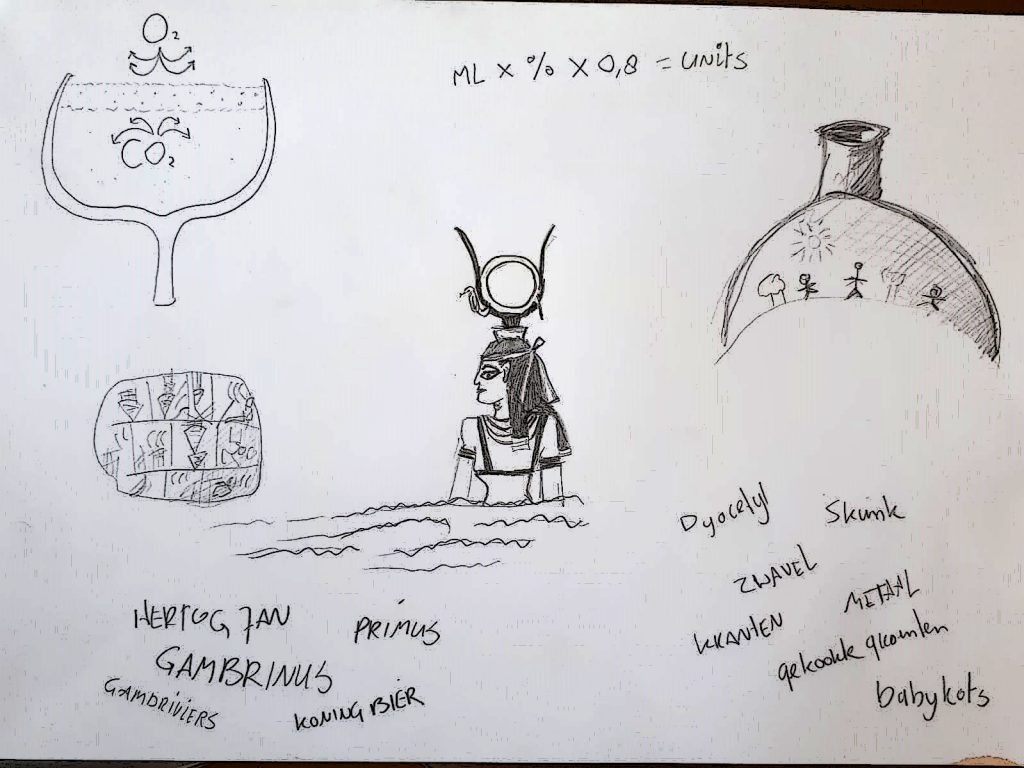 O₂
ML x % x 0,8 = UNitS
CO₂
Dyacelyl
Skunk
ZWAVEL
METAAL
KRANTEN
gekookte groenten
babykots
HERTOG JAN
PRIMUS
GAMBRINUS
GAMBRIVIERS
KONING BIER